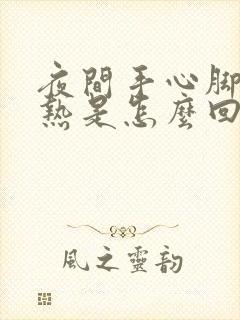 夜間手心腳
熱是怎麼回
風之靈韵